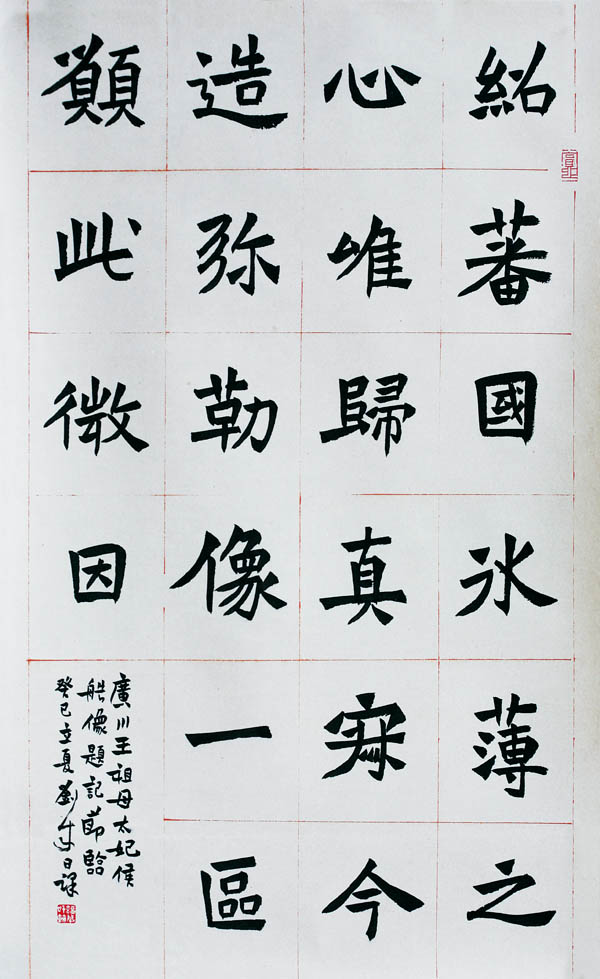 紹蕃國冰薄之
心唯歸真寂今
造弥勒像一區
願此微因
廣川王祖母太妃侯
艁像題記節臨
癸巳立夏劉日課